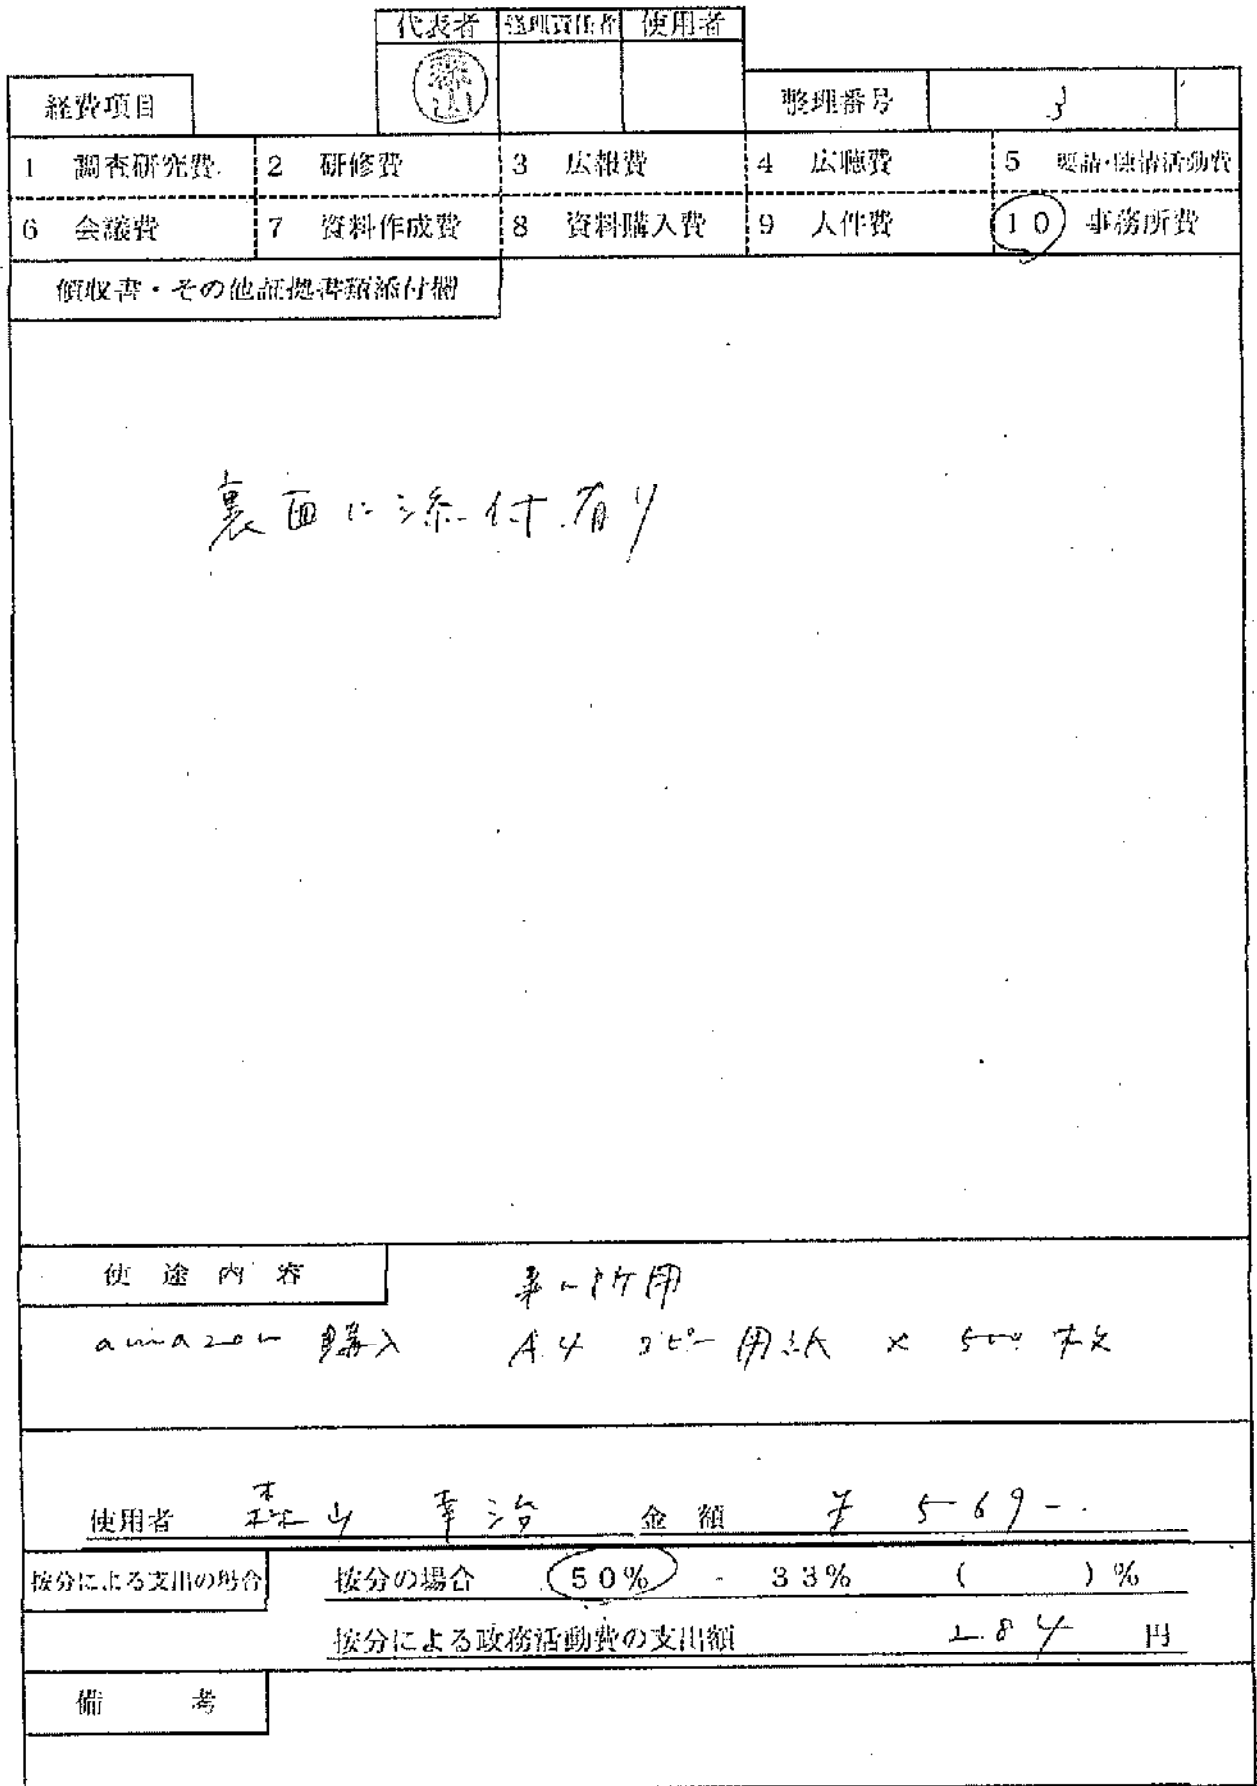 代表者 経理責任者 使用者
森山
経費項目 整理番号 3
1 調査研究費 2 研修費 3 広報費 4 広聴費 5 要請・陳情活動費
6 会議費 7 資料作成費 8 資料購入費 9 人件費 10 事務所費
領収書・その他証拠書類添付欄
裏面に添付有り
使途内容 事務所用
amazon 購入 A4 コピー用紙 × 500 枚
使用者 森山 幸治 金額 ¥569-
按分による支出の場合 按分の場合 50% ・ 33% ( )%
按分による政務活動費の支出額 284 円
備考